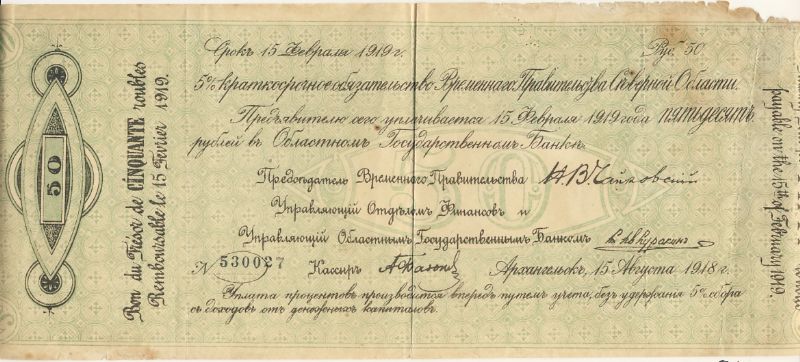 Срокъ 15 Февраля 1919 г. Руб. 50
5% краткосрочное обязательство Временнаго Правительства Съверной Области.
Предъявителю сего уплачивается 15 Февраля 1919 года пятьдесятъ
рублей въ Областномъ Государственномъ Банкъ.
Предсъдатель Временнаго Правительства Н. В. Чайковский
Управляющий Отдъломъ Финансовъ и
Управляющий Областнымъ Государственнымъ Банкомъ
№ 530027 Кассиръ Архангельскъ, 15 Августа 1918 г.
Уплата процентовъ производится впередъ путемъ учета, безъ удержания 5% сбора
съ доходовъ отъ денежныхъ капиталовъ.
50
Bon du Trésor de CINQUANTE roubles
Remboursable le 15 Février 1919.
payable on the 15th of February 1919.
50